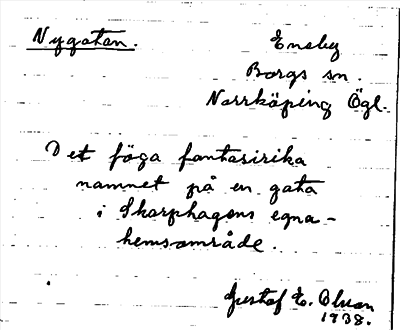 Nygatan.
Eneby
Borgs sn.
Norrköping Ögl.
Det föga fantasirika
namnet på en gata
i Skarphagens egna-
hemsområde.
Gustaf E. Olsson
1938.